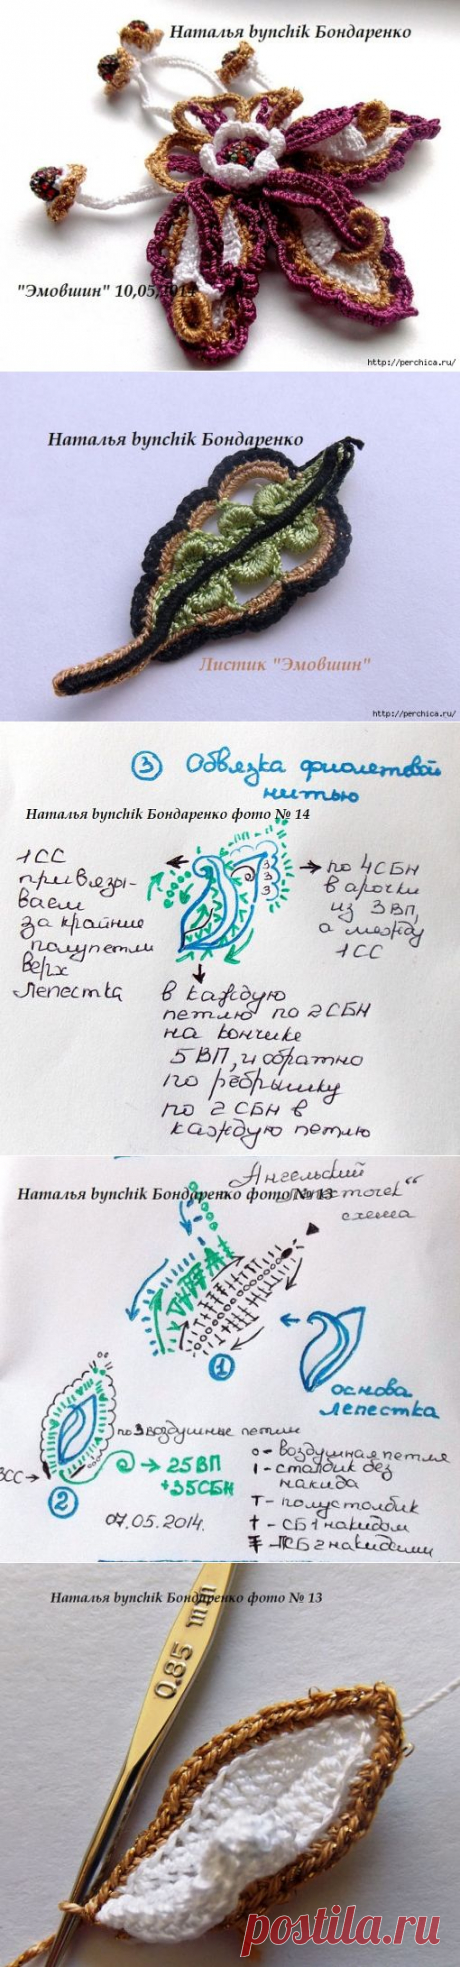 Наталья bynchik Бондаренко
"Эмовшин" 10,05,2014
http://perchica.ru/
Наталья bynchik Бондаренко
Листик "Эмовшин"
http://perchica.ru/
3 Обвязка фиолетовой
нитью
Наталья bynchik Бондаренко фото № 14
1СС
привязы-
ваем
за крайние
полупетли
верх
лепестка
3
3
3
по 4СБН
в арочки
из 3ВП,
а между
1СС
в каждую
петлю по 2СБН
на кончике
5ВП, и обратно
по рёбрышку
по 2СБН в
каждую петлю
Ангельский
лепесточек"
схема
Наталья bynchik Бондаренко фото № 13
1
основа
лепестка
по 3 воздушные петли
3СС
2
25ВП
+35СБН
07.05.2014.
о - воздушная петля
ı - столбик без
накида
т - полустолбик
† - СБ 1 накидом
ПСБ 2 накидами
Наталья bynchik Бондаренко фото № 13
0.85 mm
postila.ru